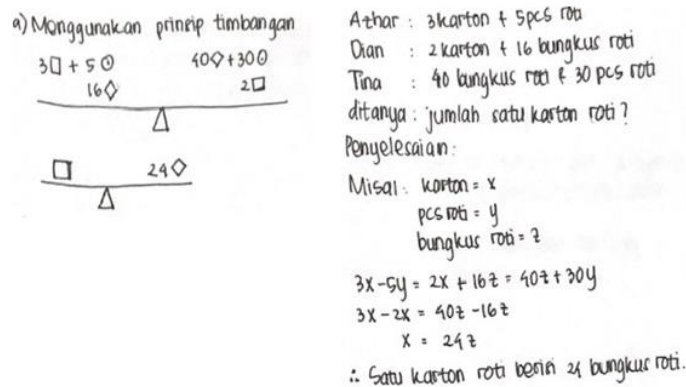 a) Menggunakan prinsip timbangan
3□ + 5⊙ 40◇+30⊙
16◇ 2□
□ 24◇
Azhar : 3 karton + 5pcs roti
Dian : 2 karton + 16 bungkus roti
Tina : 40 bungkus roti & 30 pcs roti
ditanya : jumlah satu karton roti?
Penyelesaian:
Misal : karton = x
pcs roti = y
bungkus roti = z
3x-5y = 2x + 16z = 40z + 30y
3x-2x = 40z -16z
x = 24z
∴ Satu karton roti berisi 24 bungkus roti.